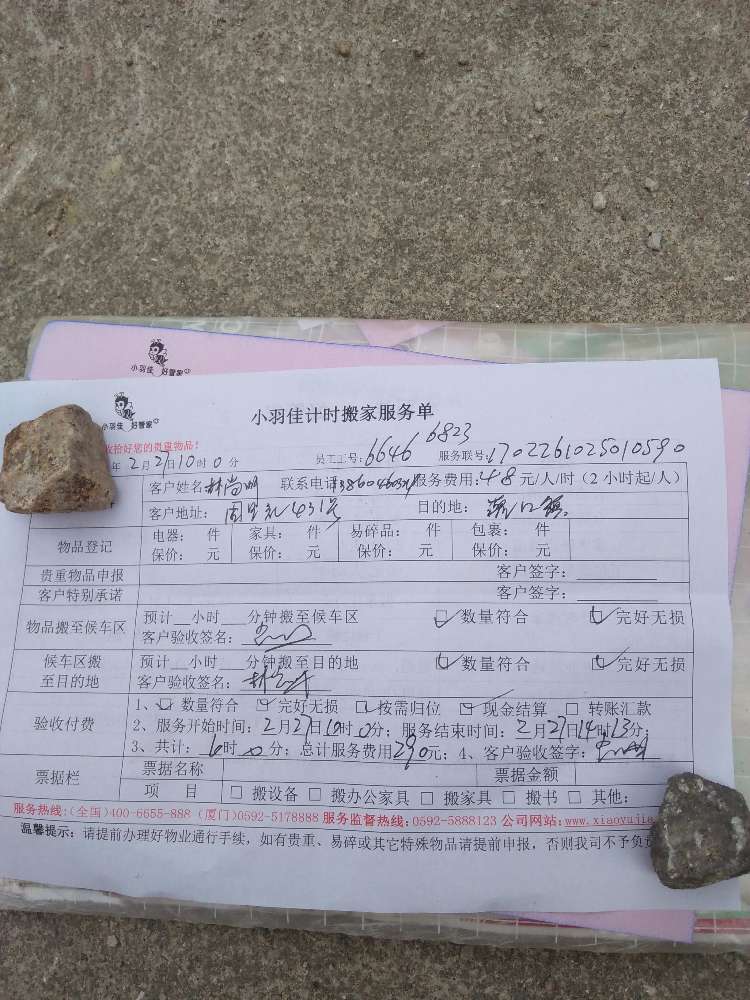 小羽佳 好管家
小羽佳 好管家
小羽佳计时搬家服务单
收拾好您的贵重物品!
年2月27日10时0分 员工工号:6646 6823 服务联号:1702261025010590
客户姓名:林尚明 联系电话: 服务费用:48元/人/时(2小时起/人)
客户地址: 431号 目的地:
物品登记 电器: 件 家具: 件 易碎品: 件 包裹: 件
保价: 元 保价: 元 保价: 元 保价: 元
贵重物品申报 客户签字:
客户特别承诺 客户签字:
物品搬至候车区 预计__小时___分钟搬至候车区 ☑数量符合 ☑完好无损
客户验收签名:
候车区搬至目的地 预计__小时___分钟搬至目的地 ☑数量符合 ☑完好无损
客户验收签名:
验收付费 1、☑数量符合 ☑完好无损 ☑按需归位 ☑现金结算 □转账汇款
2、服务开始时间:2月27日10时0分;服务结束时间:2月27日14时13分;
3、共计:6时0分;总计服务费用290元;4、客户验收签字:
票据栏 票据名称 票据金额
项 目 □搬设备 □搬办公家具 □搬家具 □搬书 □其他:
服务热线:(全国)400-6655-888 (厦门)0592-5178888 服务监督热线:0592-5888123 公司网站:www.xiaoyujia
温馨提示:请提前办理好物业通行手续,如有贵重、易碎或其它特殊物品请提前申报,否则我司不予负